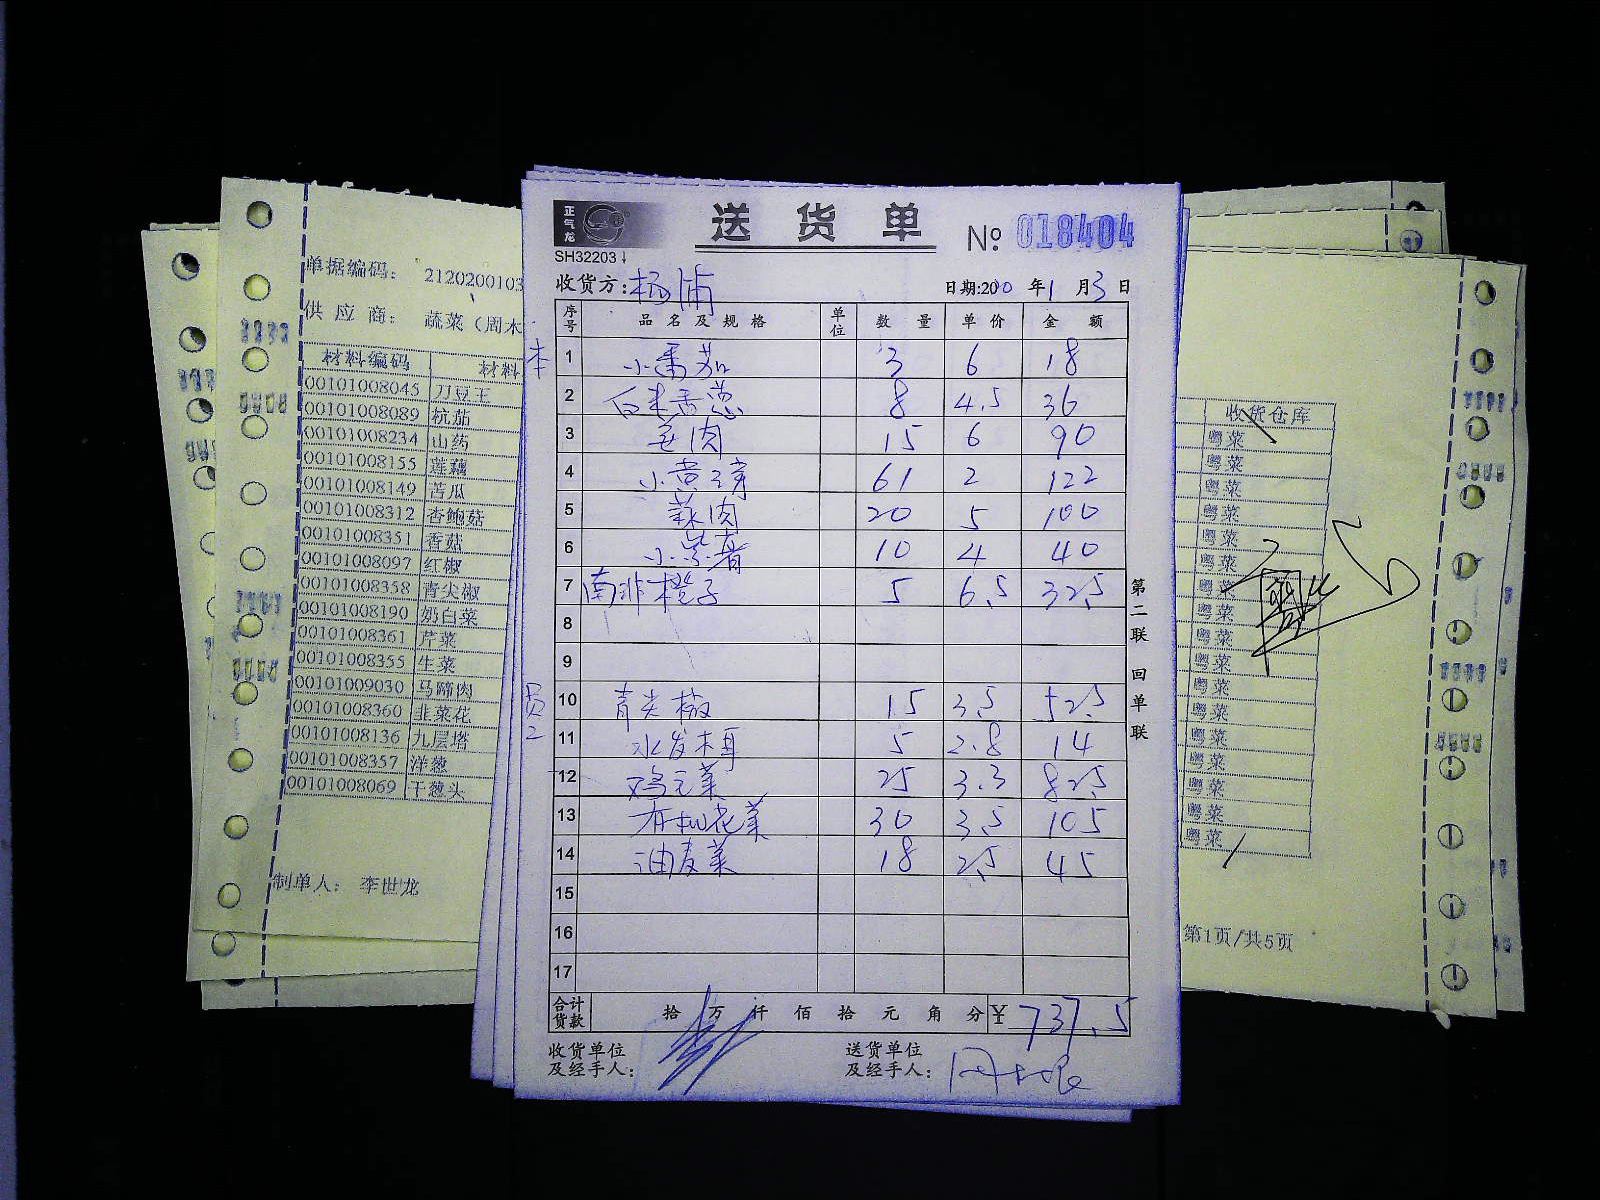 单据编码： 2120200103
供 应 商： 蔬菜（周木
材料编码 材料
00101008045 刀豆王
00101008089 杭茄
00101008234 山药
00101008155 莲藕
00101008149 苦瓜
00101008312 杏鲍菇
00101008351 香菇
00101008097 红椒
00101008358 青尖椒
00101008190 奶白菜
00101008361 芹菜
00101008355 生菜
00101009030 马蹄肉
00101008360 韭菜花
00101008136 九层塔
00101008357 洋葱
00101008069 干葱头
制单人： 李世龙
正气龙
送 货 单
№ 018404
SH32203
收货方：杨浦
日期:20 年1月3日
序号 品名及规格 单位 数量 单价 金额
本
1 小番茄 3 6 18
2 白米舌葱 8 4.5 36
3 毛肉 15 6 90
4 小黄 61 2 122
5 蒜肉 20 5 100
6 小紫 10 4 40
7 南非橙子 5 6.5 32.5
8
9
员2
10 青尖椒 15 3.5 52.5
11 水发木耳 5 2.8 14
12 鸡毛菜 25 3.3 82.5
13 有机花菜 30 3.5 105
14 油麦菜 18 2.5 45
15
16
17
合计货款 拾 万 仟 佰 拾 元 角 分 ¥ 737.5
收货单位及经手人：
送货单位及经手人：
第二联 回单联
收货仓库
粤菜
粤菜
粤菜
粤菜
粤菜
粤菜
粤菜
粤菜
粤菜
粤菜
粤菜
粤菜
粤菜
粤菜
粤菜
粤菜
粤菜
第1页/共5页